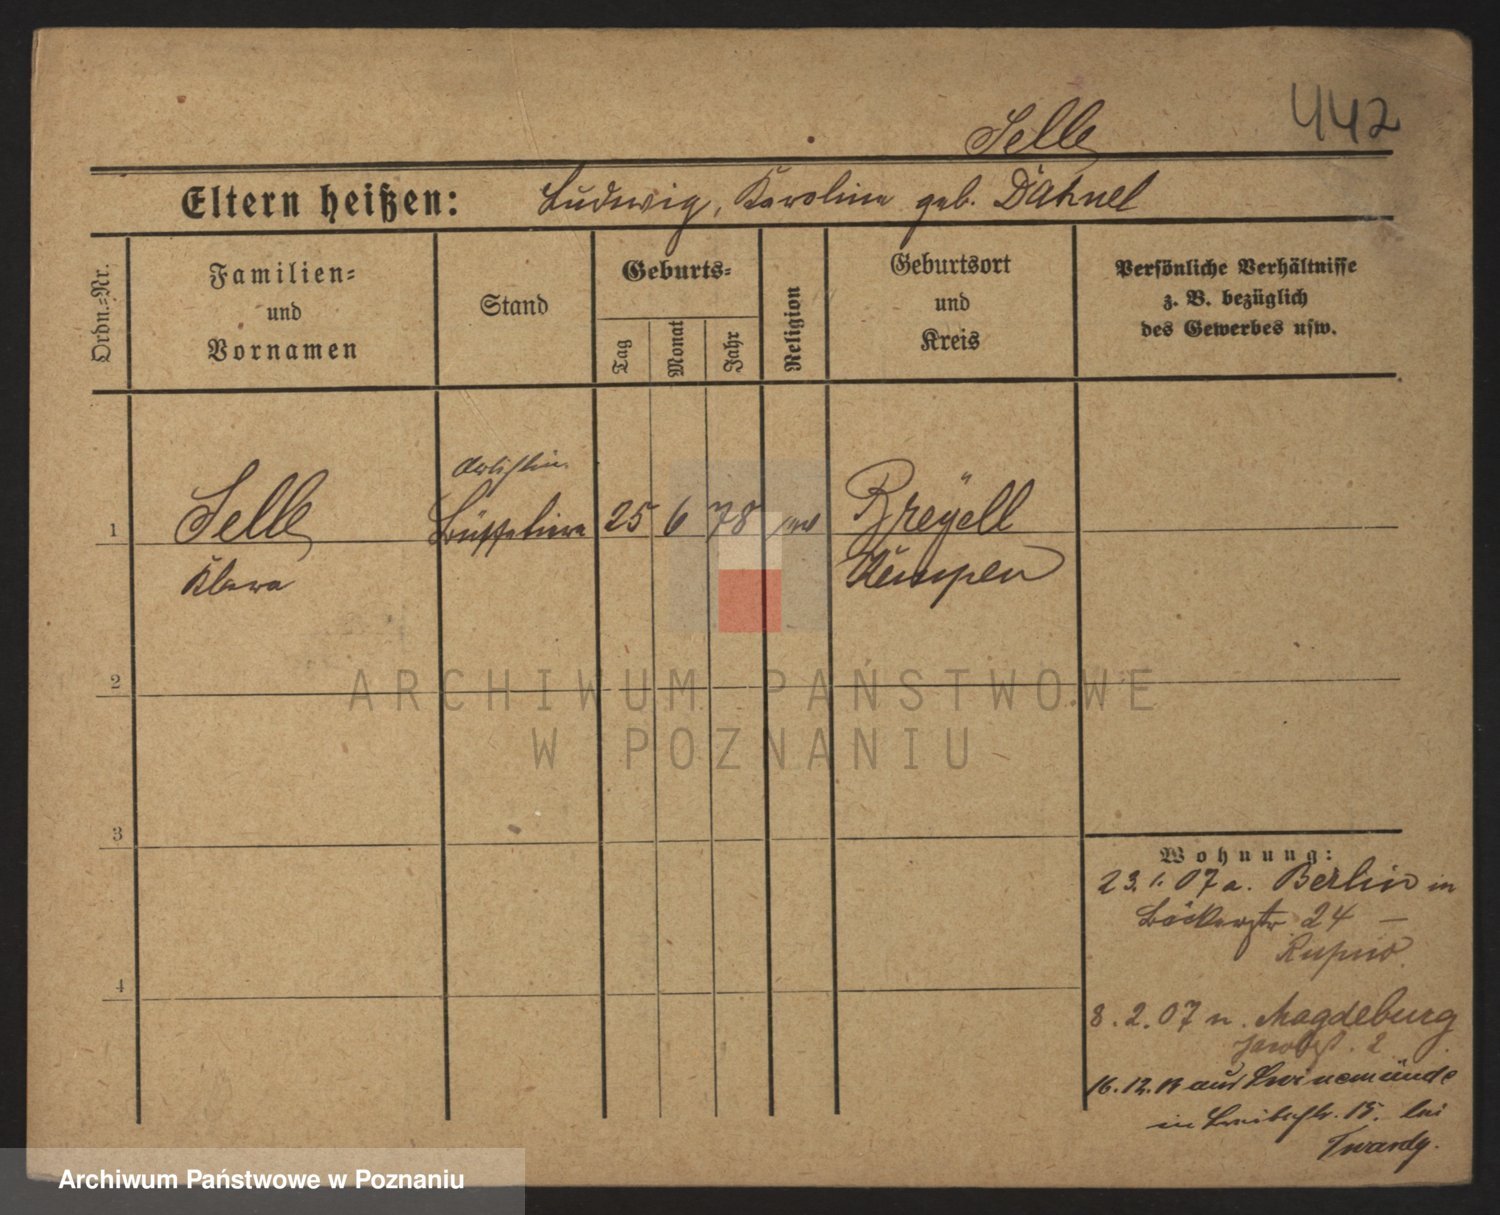 442
Selle
Eltern heißen: Ludwig, Karoline geb. Dähnel
Ordn.-Nr.
Familien-
und
Vornamen
Stand
Geburts-
Tag
Monat
Jahr
Religion
Geburtsort
und
Kreis
Persönliche Verhältnisse
z. B. bezüglich
des Gewerbes usw.
Artistin
1 Selle Büffetiere 25 6 78 Breyell
Klara Kempen
2
ARCHIWUM PAŃSTWOWE
W POZNANIU
3
Wohnung:
23. 1. 07 a. Berlin in
Bäckerstr 24 —
8. 2. 07 n. Magdeburg
2
16. 12. aus Swinemünde
in 15. bei
Twardy.
4
Archiwum Państwowe w Poznaniu